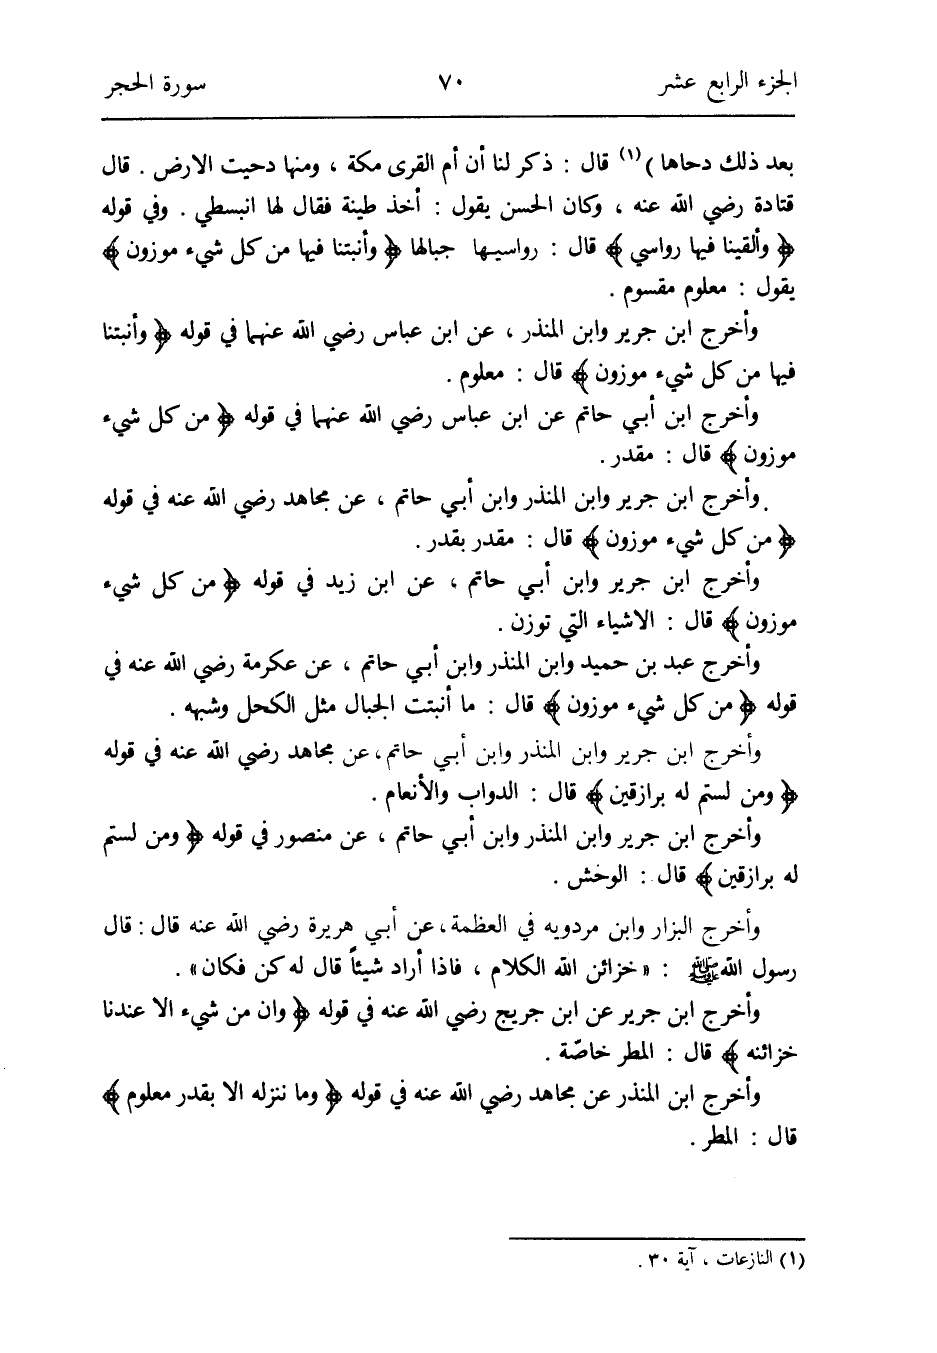 الجزء الرابع عشر ٧٠ سورة الحجر
بعد ذلك دحاها ) (١) قال : ذكر لنا أن أم القرى مكة ، ومنها دحيت الارض . قال
قتادة رضي الله عنه ، وكان الحسن يقول : أخذ طينة فقال لها انبسطي . وفي قوله
﴿ وألقينا فيها رواسي ﴾ قال : رواسيها جبالها ﴿ وأنبتنا فيها من كل شيء موزون ﴾
يقول : معلوم مقسوم .
وأخرج ابن جرير وابن المنذر ، عن ابن عباس رضي الله عنهما في قوله ﴿ وأنبتنا
فيها من كل شيء موزون ﴾ قال : معلوم .
وأخرج ابن أبي حاتم عن ابن عباس رضي الله عنهما في قوله ﴿ من كل شيء
موزون ﴾ قال : مقدر .
وأخرج ابن جرير وابن المنذر وابن أبي حاتم ، عن مجاهد رضي الله عنه في قوله
﴿ من كل شيء موزون ﴾ قال : مقدر بقدر .
وأخرج ابن جرير وابن أبي حاتم ، عن ابن زيد في قوله ﴿ من كل شيء
موزون ﴾ قال : الاشياء التي توزن .
وأخرج عبد بن حميد وابن المنذر وابن أبي حاتم ، عن عكرمة رضي الله عنه في
قوله ﴿ من كل شيء موزون ﴾ قال : ما أنبتت الجبال مثل الكحل وشبهه .
وأخرج ابن جرير وابن المنذر وابن أبي حاتم ، عن مجاهد رضي الله عنه في قوله
﴿ ومن لستم له برازقين ﴾ قال : الدواب والأنعام .
وأخرج ابن جرير وابن المنذر وابن أبي حاتم ، عن منصور في قوله ﴿ ومن لستم
له برازقين ﴾ قال : الوحش .
وأخرج البزار وابن مردويه في العظمة ، عن أبي هريرة رضي الله عنه قال : قال
رسول الله ﷺ : « خزائن الله الكلام ، فاذا أراد شيئاً قال له كن فكان » .
وأخرج ابن جرير عن ابن جريج رضي الله عنه في قوله ﴿ وان من شيء الا عندنا
خزائنه ﴾ قال : المطر خاصّة .
وأخرج ابن المنذر عن مجاهد رضي الله عنه في قوله ﴿ وما ننزله الا بقدر معلوم ﴾
قال : المطر .
(١) النازعات ، آية ٣٠ .